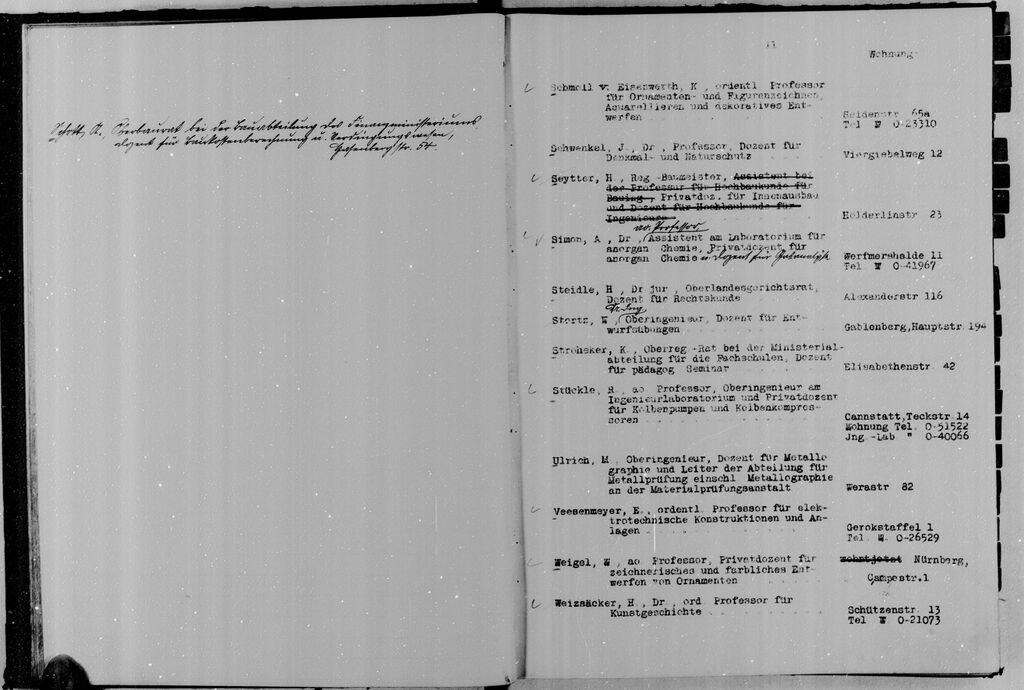 Schott, K. Oberbaurat bei der Bauabteilung des Finanzministeriums,
Dozent für Baukostenberechnung u. Verdingungswesen,
Hasenbergstr. 54.
11
Wohnung
Schmoll v. Eisenwerth, K , ordentl Professor
für Ornamenten- und Figurenzeichnen,
Aquarellieren und dekoratives Ent-
werfen . . . . . . . . . Seidenstr 65a
Tel W 0-23310
Schwenkel, J , Dr , Professor, Dozent für
Denkmal- und Naturschutz . . . . Viergiebelweg 12
Seytter, H , Reg -Baumeister, Assistent bei
der Professur für Hochbaukunde für
Bauing , Privatdoz. für Innenausbau
und Dozent für Hochbaukunde für
Ingenieure Hölderlinstr 23
ao. Professor
Simon, A , Dr , Assistent am Laboratorium für
anorgan Chemie, Privatdozent für
anorgan Chemie u. Dozent für Gasanalyse Werfmershalde 11
Tel W 0-41967
Steidle, H , Dr jur , Oberlandesgerichtsrat,
Dozent für Rechtskunde . . . . Alexanderstr 116
Dr Ing
Stortz, W , Oberingenieur, Dozent für Ent-
wurfsübungen . . . . . . . . Gablenberg,Hauptstr 194
Stroheker, K , Oberreg -Rat bei der Ministerial-
abteilung für die Fachschulen, Dozent
für pädagog Seminar . . . . . Elisabethenstr 42
Stückle, R , ao Professor, Oberingenieur am
Ingenieurlaboratorium und Privatdozent
für Kolbenpumpen und Kolbenkompres-
soren . . . . . . . . . . Cannstatt,Teckstr 14
Wohnung Tel. 0-51522
Jng -Lab " 0-40066
Ulrich, M , Oberingenieur, Dozent für Metallo
graphie und Leiter der Abteilung für
Metallprüfung einschl Metallographie
an der Materialprüfungsanstalt . . Werastr 82
Veesenmeyer, E , ordentl Professor für elek-
trotechnische Konstruktionen und An-
lagen . . . . . . . . . . Gerokstaffel 1
Tel. W. 0-26529
Weigel, W , ao Professor, Privatdozent für wohnt jetzt Nürnberg,
zeichnerisches und farbliches Ent-
werfen von Ornamenten . . . . . Campestr.1
Weizsäcker, H , Dr , ord Professor für
Kunstgeschichte . . . . . . . Schützenstr 13
Tel W 0-21073